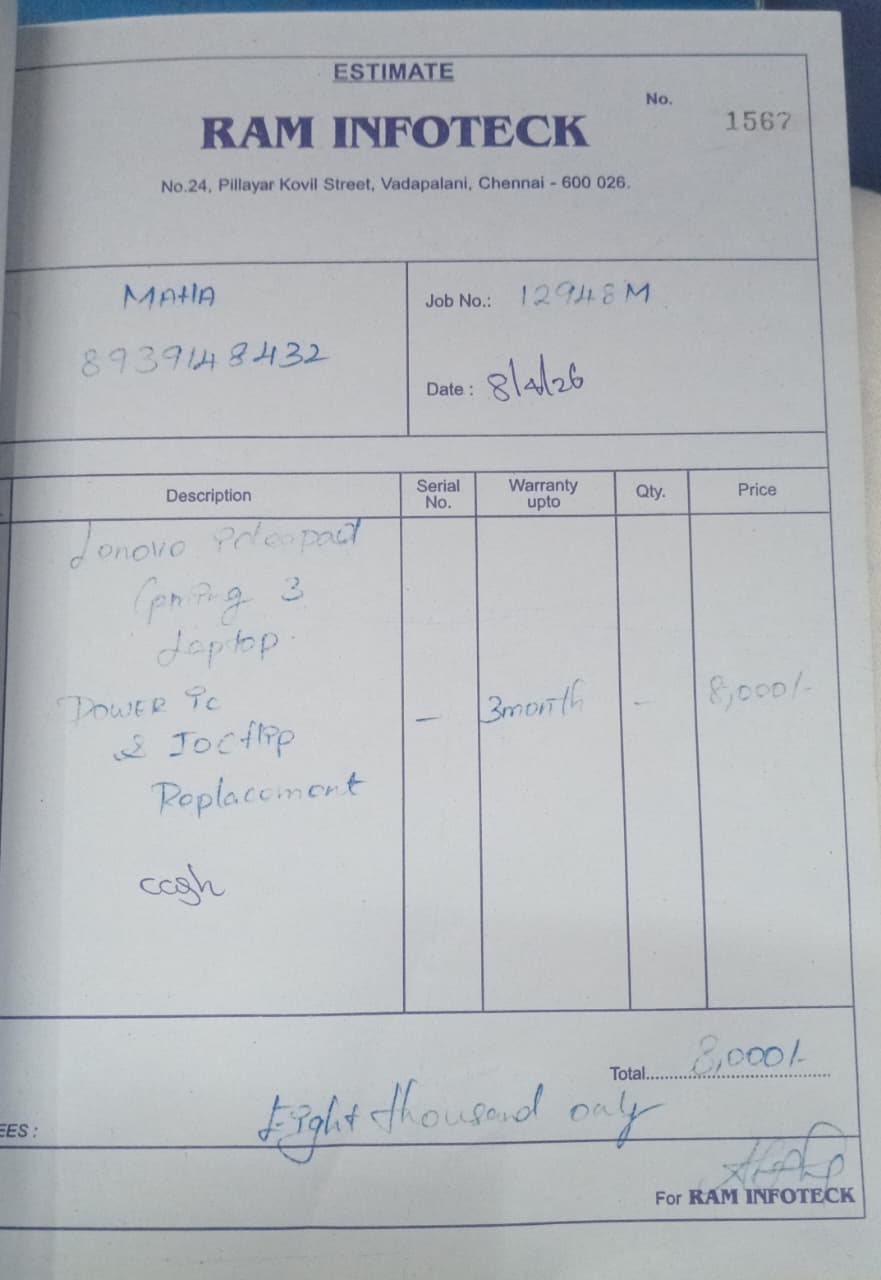 ESTIMATE
No.
1567
RAM INFOTECK
No.24, Pillayar Kovil Street, Vadapalani, Chennai - 600 026.
MAHA
8939148432
Job No.: 12948M
Date : 8/4/26
Description Serial No. Warranty upto Qty. Price
Lonovo Ideapad
Gaming 3
Laptop
POWER ic
&
Replacement
- 3month - 8,000/-
cash
Total 8,000/-
EES :
Eight thousand only
For RAM INFOTECK